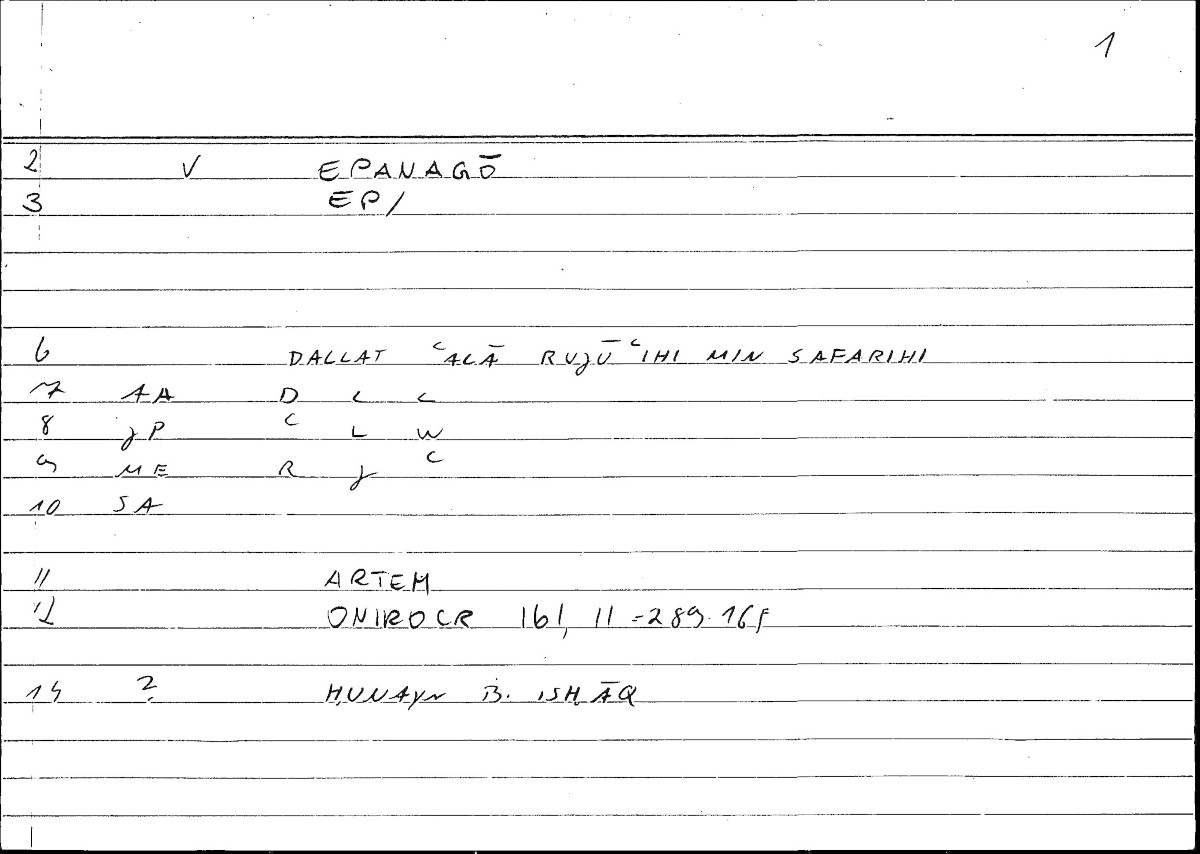 1
2 V EPANAGŌ
3 EP/
6 DALLAT ʿALĀ RUJŪʿIHI MIN SAFARIHI
7 AA D L L
8 JP ʿ L W
9 ME R J ʿ
10 SA
11 ARTEM
12 ONIROCR 161, 11 = 289.16f
14 ? ḤUNAYN B. ISḤĀQ